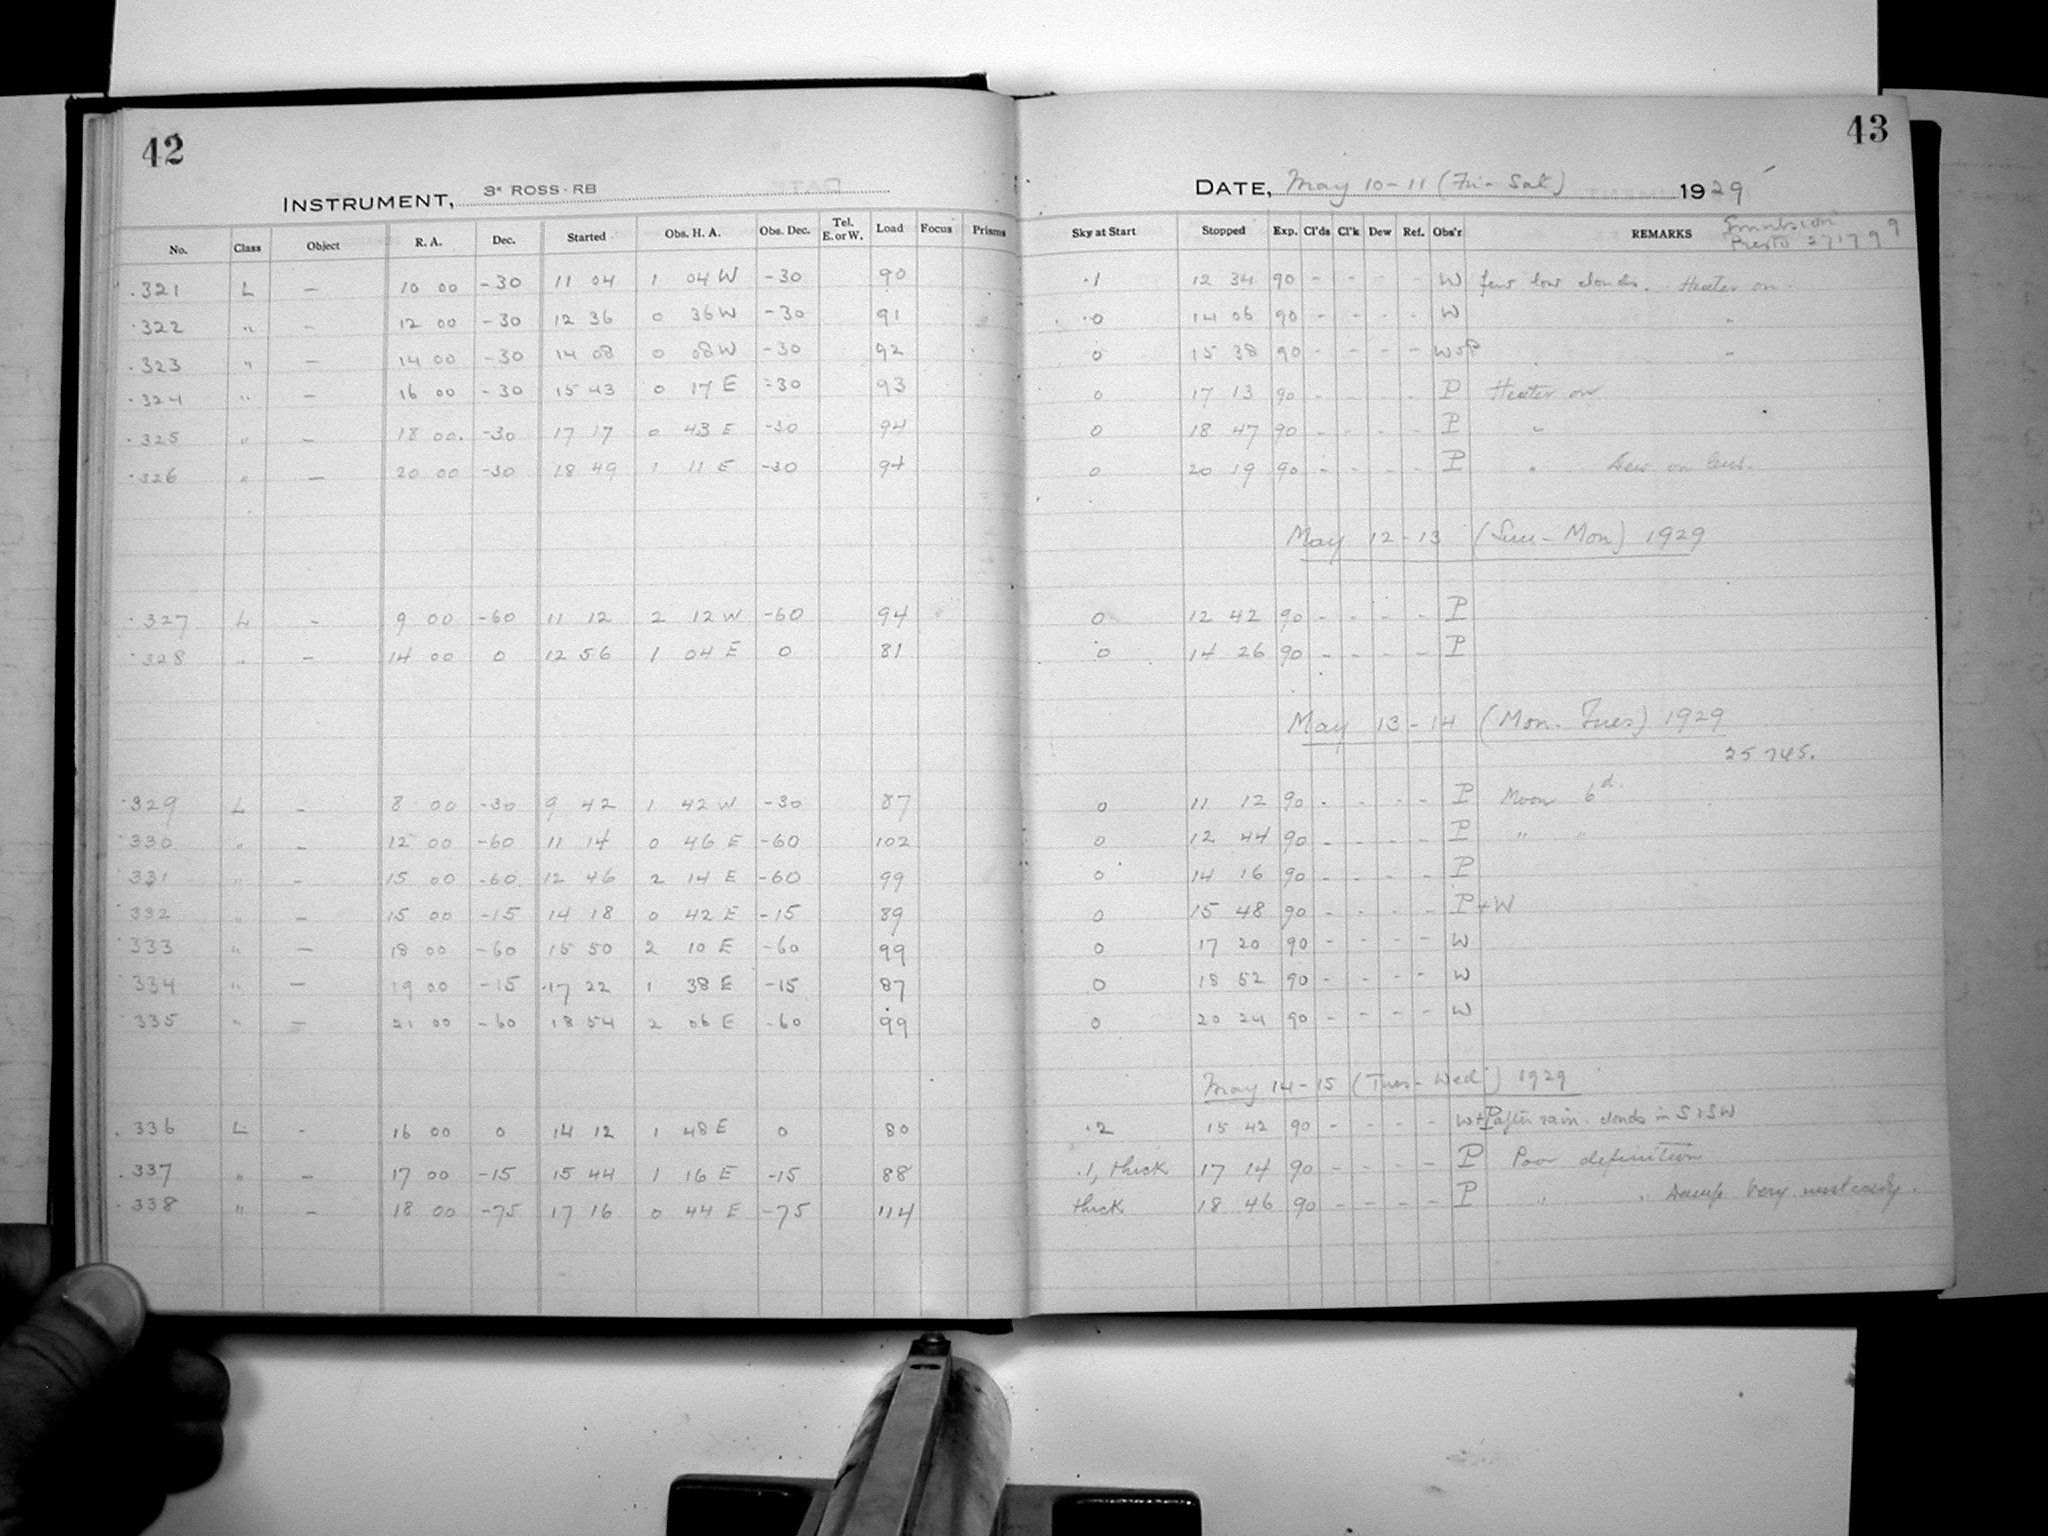 42
INSTRUMENT, 3" ROSS-RB
No. Class Object R. A. Dec. Started Obs. H. A. Obs. Dec. Tel. E. or W. Load Focus Prisms
.321 L — 10 00 -30 11 04 1 04 W -30 90
.322 " — 12 00 -30 12 36 0 36 W -30 91
.323 " — 14 00 -30 14 08 0 08 W -30 92
.324 " — 16 00 -30 15 43 0 17 E -30 93
.325 " — 18 00. -30 17 17 0 43 E -30 94
.326 " — 20 00 -30 18 49 1 11 E -30 94
.327 L — 9 00 -60 11 12 2 12 W -60 94
.328 " — 14 00 0 12 56 1 04 E 0 81
.329 L — 8 00 -30 9 42 1 42 W -30 87
.330 " — 12 00 -60 11 14 0 46 E -60 102
.331 " — 15 00 -60 12 46 2 14 E -60 99
.332 " — 15 00 -15 14 18 0 42 E -15 89
.333 " — 18 00 -60 15 50 2 10 E -60 99
.334 " — 19 00 -15 17 22 1 38 E -15 87
.335 " — 21 00 -60 18 54 2 06 E -60 99
.336 L - 16 00 0 14 12 1 48 E 0 80
.337 " — 17 00 -15 15 44 1 16 E -15 88
.338 " — 18 00 -75 17 16 0 44 E -75 114
43
DATE, May 10-11 (Fri-Sat) 1929
Sky at Start Stopped Exp. Cl'ds Cl'k Dew Ref. Obs'r REMARKS Emulsion
Presto 27179
.1 12 34 90 - - - - W few low clouds. Heater on.
.0 14 06 90 - - - - W "
0 15 38 90 - - - - W & P "
0 17 13 90 - - - - P Heater on
0 18 47 90 - - - - P "
0 20 19 90 - - - - P " Dew on lens.
May 12-13 (Sun-Mon) 1929
0 12 42 90 - - - - P
0 14 26 90 - - - - P
May 13-14 (Mon-Tues) 1929
25745.
0 11 12 90 - - - - P Moon 6d.
0 12 44 90 - - - - P " "
0 14 16 90 - - - - P
0 15 48 90 - - - - P + W
0 17 20 90 - - - - W
0 18 52 90 - - - - W
0 20 24 90 - - - - W
May 14-15 (Tues-Wed) 1929
.2 15 42 90 - - - - W + P after rain. clouds in S & SW
.1, thick 17 14 90 - - - - P Poor definition
thick 18 46 90 - - - - P " " Damp Very unsteady.